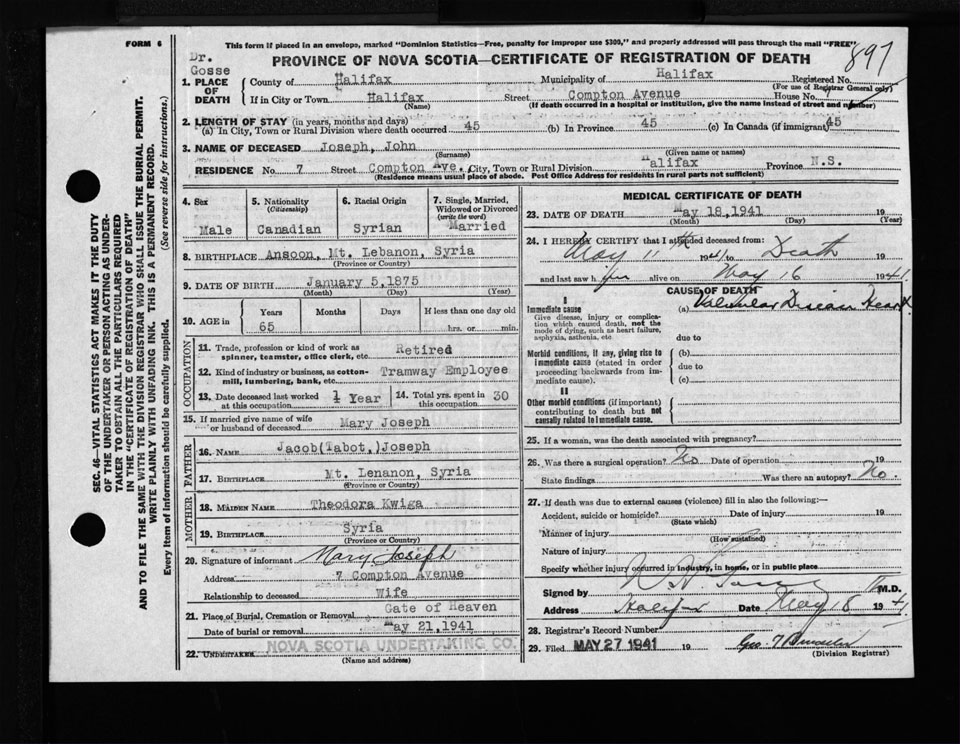 FORM 6
This form if placed in an envelope, marked "Dominion Statistics—Free, penalty for improper use $300," and properly addressed will pass through the mail "FREE"
897
Dr.
Gosse
PROVINCE OF NOVA SCOTIA—CERTIFICATE OF REGISTRATION OF DEATH
1. PLACE OF DEATH
County of Halifax Municipality of Halifax Registered No.
(For use of Registrar General only)
If in City or Town Halifax Street Compton Avenue House No. 7
(Name) (If death occurred in a hospital or institution, give the name instead of street and number)
2. LENGTH OF STAY (in years, months and days)
(a) In City, Town or Rural Division where death occurred 45 (b) In Province 45 (c) In Canada (if immigrant) 45
3. NAME OF DECEASED Joseph, John
(Surname) (Given name or names)
RESIDENCE No. 7 Street Compton Ave. City, Town or Rural Division Halifax Province N.S.
(Residence means usual place of abode. Post Office Address for residents in rural parts not sufficient)
4. Sex
Male
5. Nationality
(Citizenship)
Canadian
6. Racial Origin
Syrian
7. Single, Married,
Widowed or Divorced
(write the word)
Married
8. BIRTHPLACE Ansoon, Mt. Lebanon, Syria
(Province or Country)
9. DATE OF BIRTH January 5, 1875
(Month) (Day) (Year)
10. AGE in
Years Months Days If less than one day old
65 hrs. or min.
OCCUPATION
11. Trade, profession or kind of work as
spinner, teamster, office clerk, etc. Retired
12. Kind of industry or business, as cotton-
mill, lumbering, bank, etc. Tramway Employee
13. Date deceased last worked
at this occupation 1 Year
14. Total yrs. spent in
this occupation 30
15. If married give name of wife
or husband of deceased Mary Joseph
FATHER
16. NAME Jacob(Tabot,)Joseph
17. BIRTHPLACE Mt. Lenanon, Syria
(Province or Country)
MOTHER
18. MAIDEN NAME Theodora Kwiga
19. BIRTHPLACE Syria
(Province or Country)
20. Signature of informant Mary Joseph
Address 7 Compton Avenue
Relationship to deceased Wife
21. Place of Burial, Cremation or Removal Gate of Heaven
Date of burial or removal May 21, 1941
22. UNDERTAKER NOVA SCOTIA UNDERTAKING CO.
(Name and address)
MEDICAL CERTIFICATE OF DEATH
23. DATE OF DEATH May 18, 1941 19
(Month) (Day) (Year)
24. I HEREBY CERTIFY that I attended deceased from:
May 11 1941 to Death 19
and last saw him alive on May 16 1941.
CAUSE OF DEATH
I
Immediate cause
Give disease, injury or complica-
tion which caused death, not the
mode of dying, such as heart failure,
asphyxia, asthenia, etc
(a) Valvular Disease Heart
due to
Morbid conditions, if any, giving rise to
immediate cause (stated in order
proceeding backwards from im-
mediate cause).
(b)
due to
(c)
II
Other morbid conditions (if important)
contributing to death but not
causally related to immediate cause.
25. If a woman, was the death associated with pregnancy?
26. Was there a surgical operation? No Date of operation 19
State findings Was there an autopsy? No
27. If death was due to external causes (violence) fill in also the following:—
Accident, suicide or homicide? Date of injury 19
(State which)
Manner of injury
(How sustained)
Nature of injury
Specify whether injury occurred in industry, in home, or in public place
Signed by M.D.
Address Halifax Date May 18 1941
28. Registrar's Record Number
29. Filed MAY 27 1941 19
(Division Registrar)
SEC. 46—VITAL STATISTICS ACT MAKES IT THE DUTY
OF THE UNDERTAKER OR PERSON ACTING AS UNDER-
TAKER TO OBTAIN ALL THE PARTICULARS REQUIRED
IN THE "CERTIFICATE OF REGISTRATION OF DEATH"
AND TO FILE THE SAME WITH THE DIVISION REGISTRAR WHO SHALL ISSUE THE BURIAL PERMIT.
WRITE PLAINLY WITH UNFADING INK. THIS IS A PERMANENT RECORD.
Every item of information should be carefully supplied. (See reverse side for instructions.)